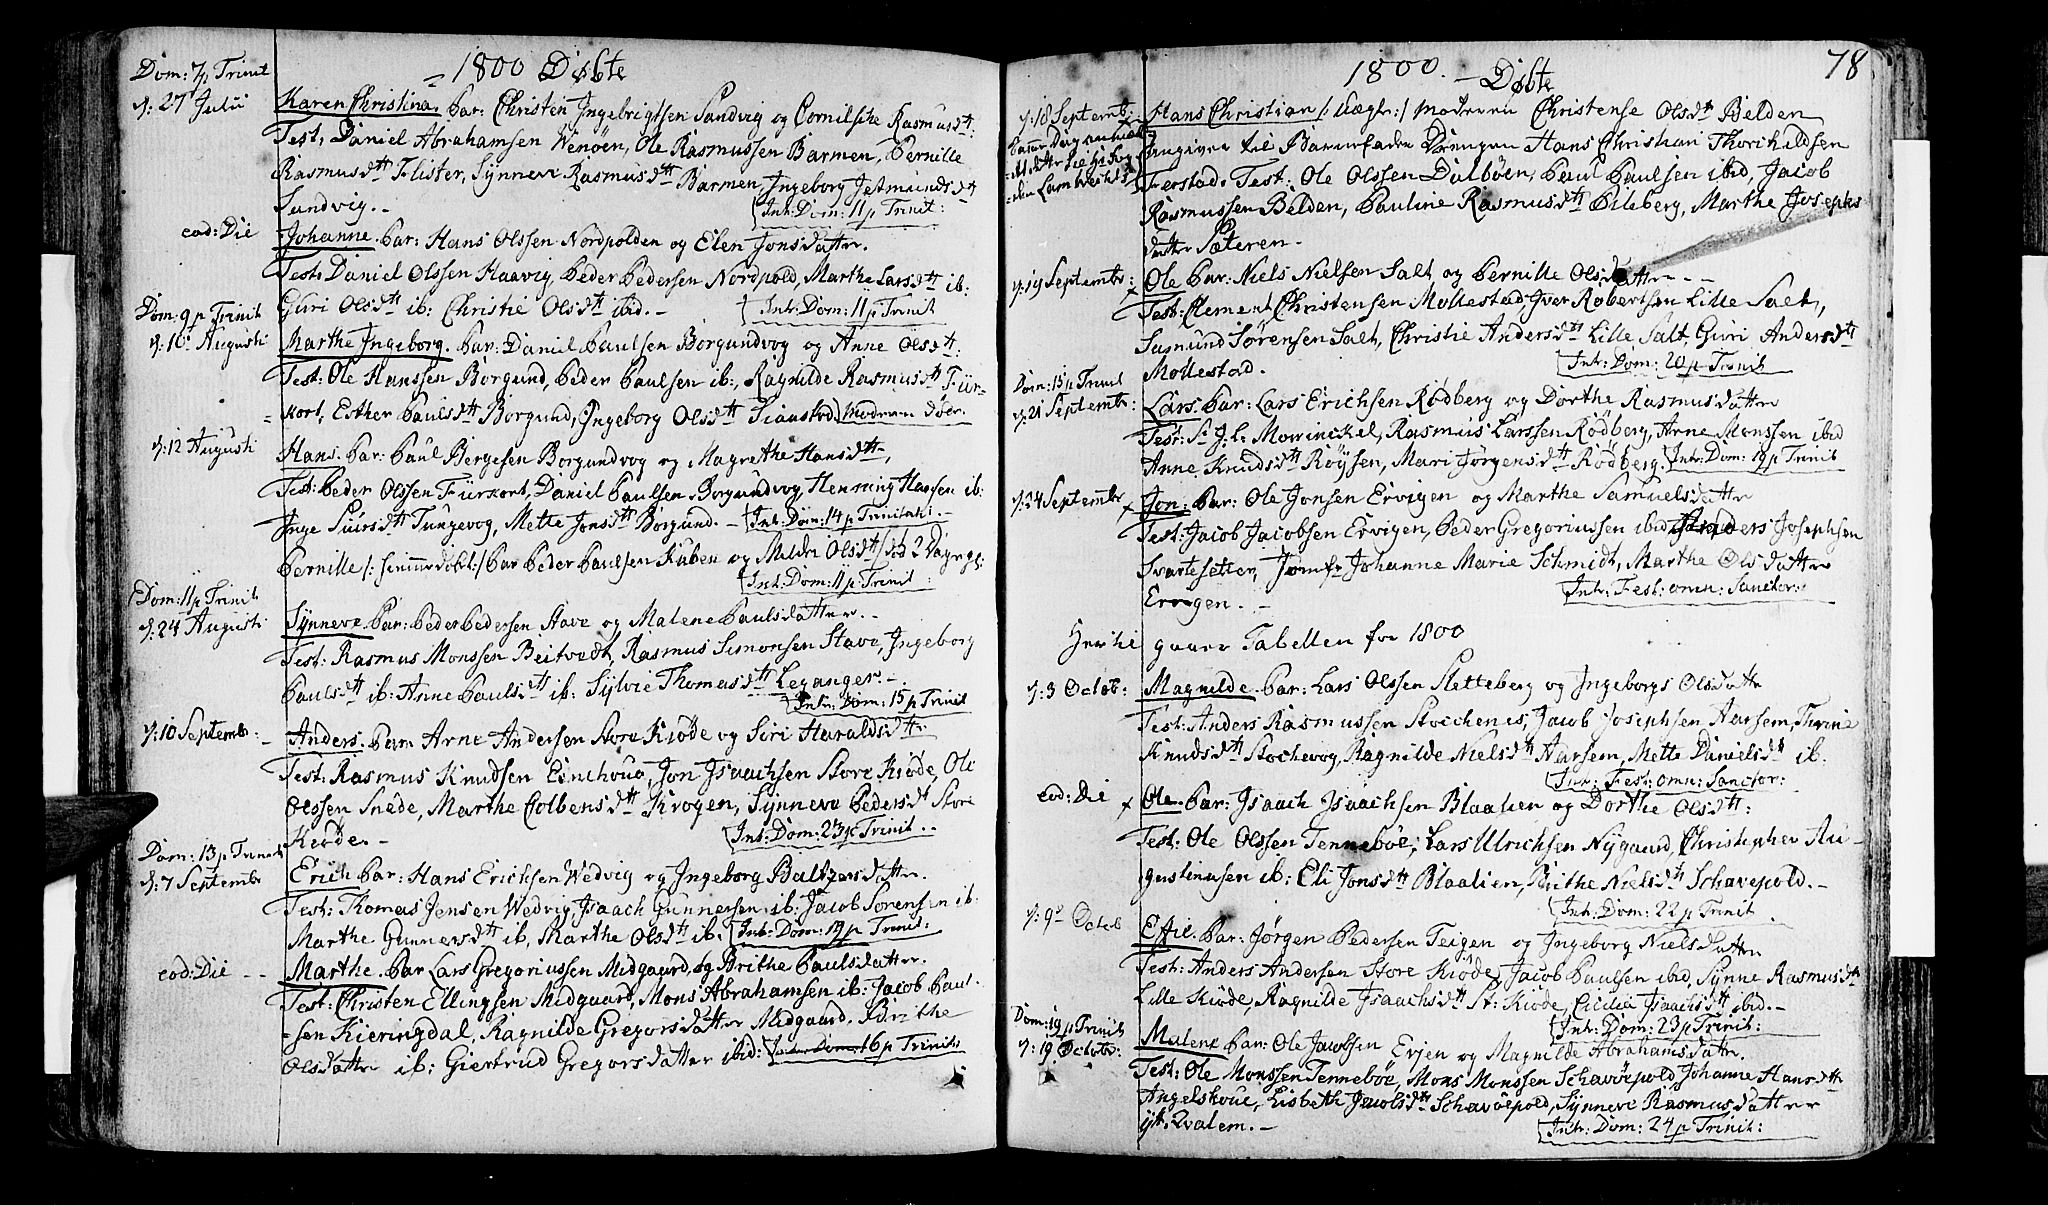 1800 Døbte
Dom: 7 p Trinit
d: 27 Julii
Karen Christina. Par: Christen Ingebrigtsen Sandvig og Cornilsche Rasmusdtt:
Test: Daniel Abrahamsen Wenøen, Ole Rasmussen Barmen, Pernille
Rasmusdtt Flister, Synneve Rasmusdtt Barmen, Ingeborg Jetmundsdtt
Sandvig.
Intr: Dom: 11 p Trinit:
eod: Die
Johanne. Par: Hans Olssen Nordpolden og Elen Jonsdatter.
Test: Daniel Olssen Haavig, Peder Pedersen Nordpold, Marthe Larsdtt ib:
Guri Olsdtt ib: Christie Olsdtt ibid. -
Intr: Dom: 11 p Trinit
Dom: 9 p Trinit
d: 10 Augusti
Marthe Ingeborg. Par: Daniel Paulsen Borgundvog og Anne Olsdtt:
Test: Ole Hanssen Borgund, Peder Paulsen ib:, Ragnilde Rasmusdtt Fiir-
= kort, Esther Paulsdtt Borgund, Ingeborg Olsdtt
Modren døer.
d: 12 Augusti
Hans. Par: Paul Bergesen Borgundvog og Magrethe Hansdtt,
Test: Peder Olssen Fiirkort, Daniel Paulsen Borgundvog, Henning Hansen ib:
Inge Siursdtt Tungevog, Mette Jonsdtt Borgund. -
Intr: Dom: 14 p Trinitat:
Pernille /: hiemmedøbt :/ Par Peder Paulsen Kuben og Meldri Olsdtt / død 2 Dage gl:
Intr: Dom: 11 p Trinit:
Dom: 11 p Trinit
d: 24 Augusti
Synneve Par: Peder Pedersen Stave og Malene Paulsdatter. -
Test: Rasmus Monssen Beitvedt, Rasmus Simonsen Stave, Ingeborg
Paulsdtt ib: Anne Paulsdtt ib: Sylvie Thomasdtt Leganger. -
Intr: Dom: 15 p Trinit
d: 10 Septembr:
Anders. Par: Arne Andersen Store Kiøde og Siri Haraldsdtt:
Test: Rasmus Knudsen Einehoug, Jon Isaachsen Store Kiøde, Ole
Olssen Snede, Marthe Colbensdtt Krogen, Synneve Pedersdt Store
Kiøde. -
Intr: Dom: 23 p Trinit..
Dom: 13 p Trinit
d: 7 Septembr
Erich Par: Hans Erichsen Wedvig og Ingeborg Baltzersdatter.
Test: Thomas Jensen Wedvig, Isaach Gunnersen ib: Jacob Sørensen ib:
Marthe Gunnersdtt ib, Marthe Olsdtt ib:
Intr: Dom: 19 p Trinit:
eod: Die
Marthe. Par Lars Gregoriussen Midgaard, og Brithe Paulsdatter.
Test: Christen Ellingsen Midgaard, Mons Abrahamsen ib: Jacob Paul-
= sen Kieringdal, Ragnilde Gregorsdatter Midgaard, Brithe
Olsdatter ib: Giertrud Gregorsdatter ibid:
Intr: Dom: 16 p Trinit:
1800. - Døbte
78
d: 18 Septembr:
Hans Christian /: Uægte :/ Moderen Christense Olsdtt Belden
angiver til Barnefader Drengen Hans Christian Thorkildsen
Ferstad. Test: Ole Olssen Dalbøen, Paul Paulsen ibid, Jacob
Rasmussen Belden, Pauline Rasmusdtt Pileberg, Marthe Josephs
datter Sæteren. -
d: 19 Septembr:
Ole Par: Niels Nielsen Salt og Pernille Olsdatter. -
Test: Clement Christensen Mollestad, Iver Robertsen Lille Salt,
Samund Sørensen Salt, Christie Andersdtt Lille Salt, Guri Andersdtt
Mollestad.
Intr: Dom: 20 p Trinit
Dom: 15 p Trinit
d: 21 Septembr:
Lars. Par: Lars Erichsen Rødberg og Dorthe Rasmusdatter
Test: Sr J. L. Mowinckel, Rasmus Larssen Rødberg, Arne Monssen ibid
Anne Knudsdtt Røysen, Mari Jørgensdtt Rødberg.
Intr: Dom: 19 p Trinit
d: 24 Septembr
Jon. Par: Ole Jonsen Ervigen og Marthe Samuelsdatter
Test: Jacob Jacobsen Ervigen, Peder Gregoriussen ibid, Anders Josephsen
Svartesetter, Jomfr Johanne Marie Schmidt, Marthe Olsdatter
Ervigen. -
Intr: Fest: omn: Sanctor:
Her til gaaer Tabellen for 1800
d: 3 Octob:
Magnilde. Par: Lars Olssen Sletteberg og Ingeborg Olsdatter
Test: Anders Rasmussen Stochenes, Jacob Josephsen Aarsem, Thrine
Knudsdtt Stochevog, Ragnilde Nielsdtt Aarsem, Mette Danielsdtt ib.
Intr: Fest: omn: Sanctor:
eod: Die
Ole. Par: Isaach Isaachsen Blaalien og Dorthe Olsdtt:
Test: Ole Olssen Tennebøe, Lars Ulrichsen Nygaard, Christopher Au-
gustinusen ib: Eli Jonsdtt Blaalien, Brithe Nielsdtt Schavepold. -
Intr: Dom: 22 p Trinit
d: 9 Octob
Effie. Par: Jørgen Pedersen Teigen og Ingeborg Nielsdatter
Test: Anders Andersen Store Kiøde, Jacob Paulsen ibid, Synne Rasmusdtt
Lille Kiøde, Ragnilde Isaachsdtt St: Kiøde, Cicilia Isaachsdtt ibid. -
Intr: Dom: 23 p Trinit:
Dom: 19 p Trinit
d: 19 Octobr:
Malene Par: Ole Jacobsen Ervien og Magnilde Abrahamsdatter.
Test: Ole Monssen Tennebøe, Mons Monssen Schavøepold, Johanne Hansdtt
Angelskaue, Lisbeth Jacobsdtt Schavøepold, Synneve Rasmusdatter
yt: Qvalem. -
Intr: Dom: 24 p Trinit: